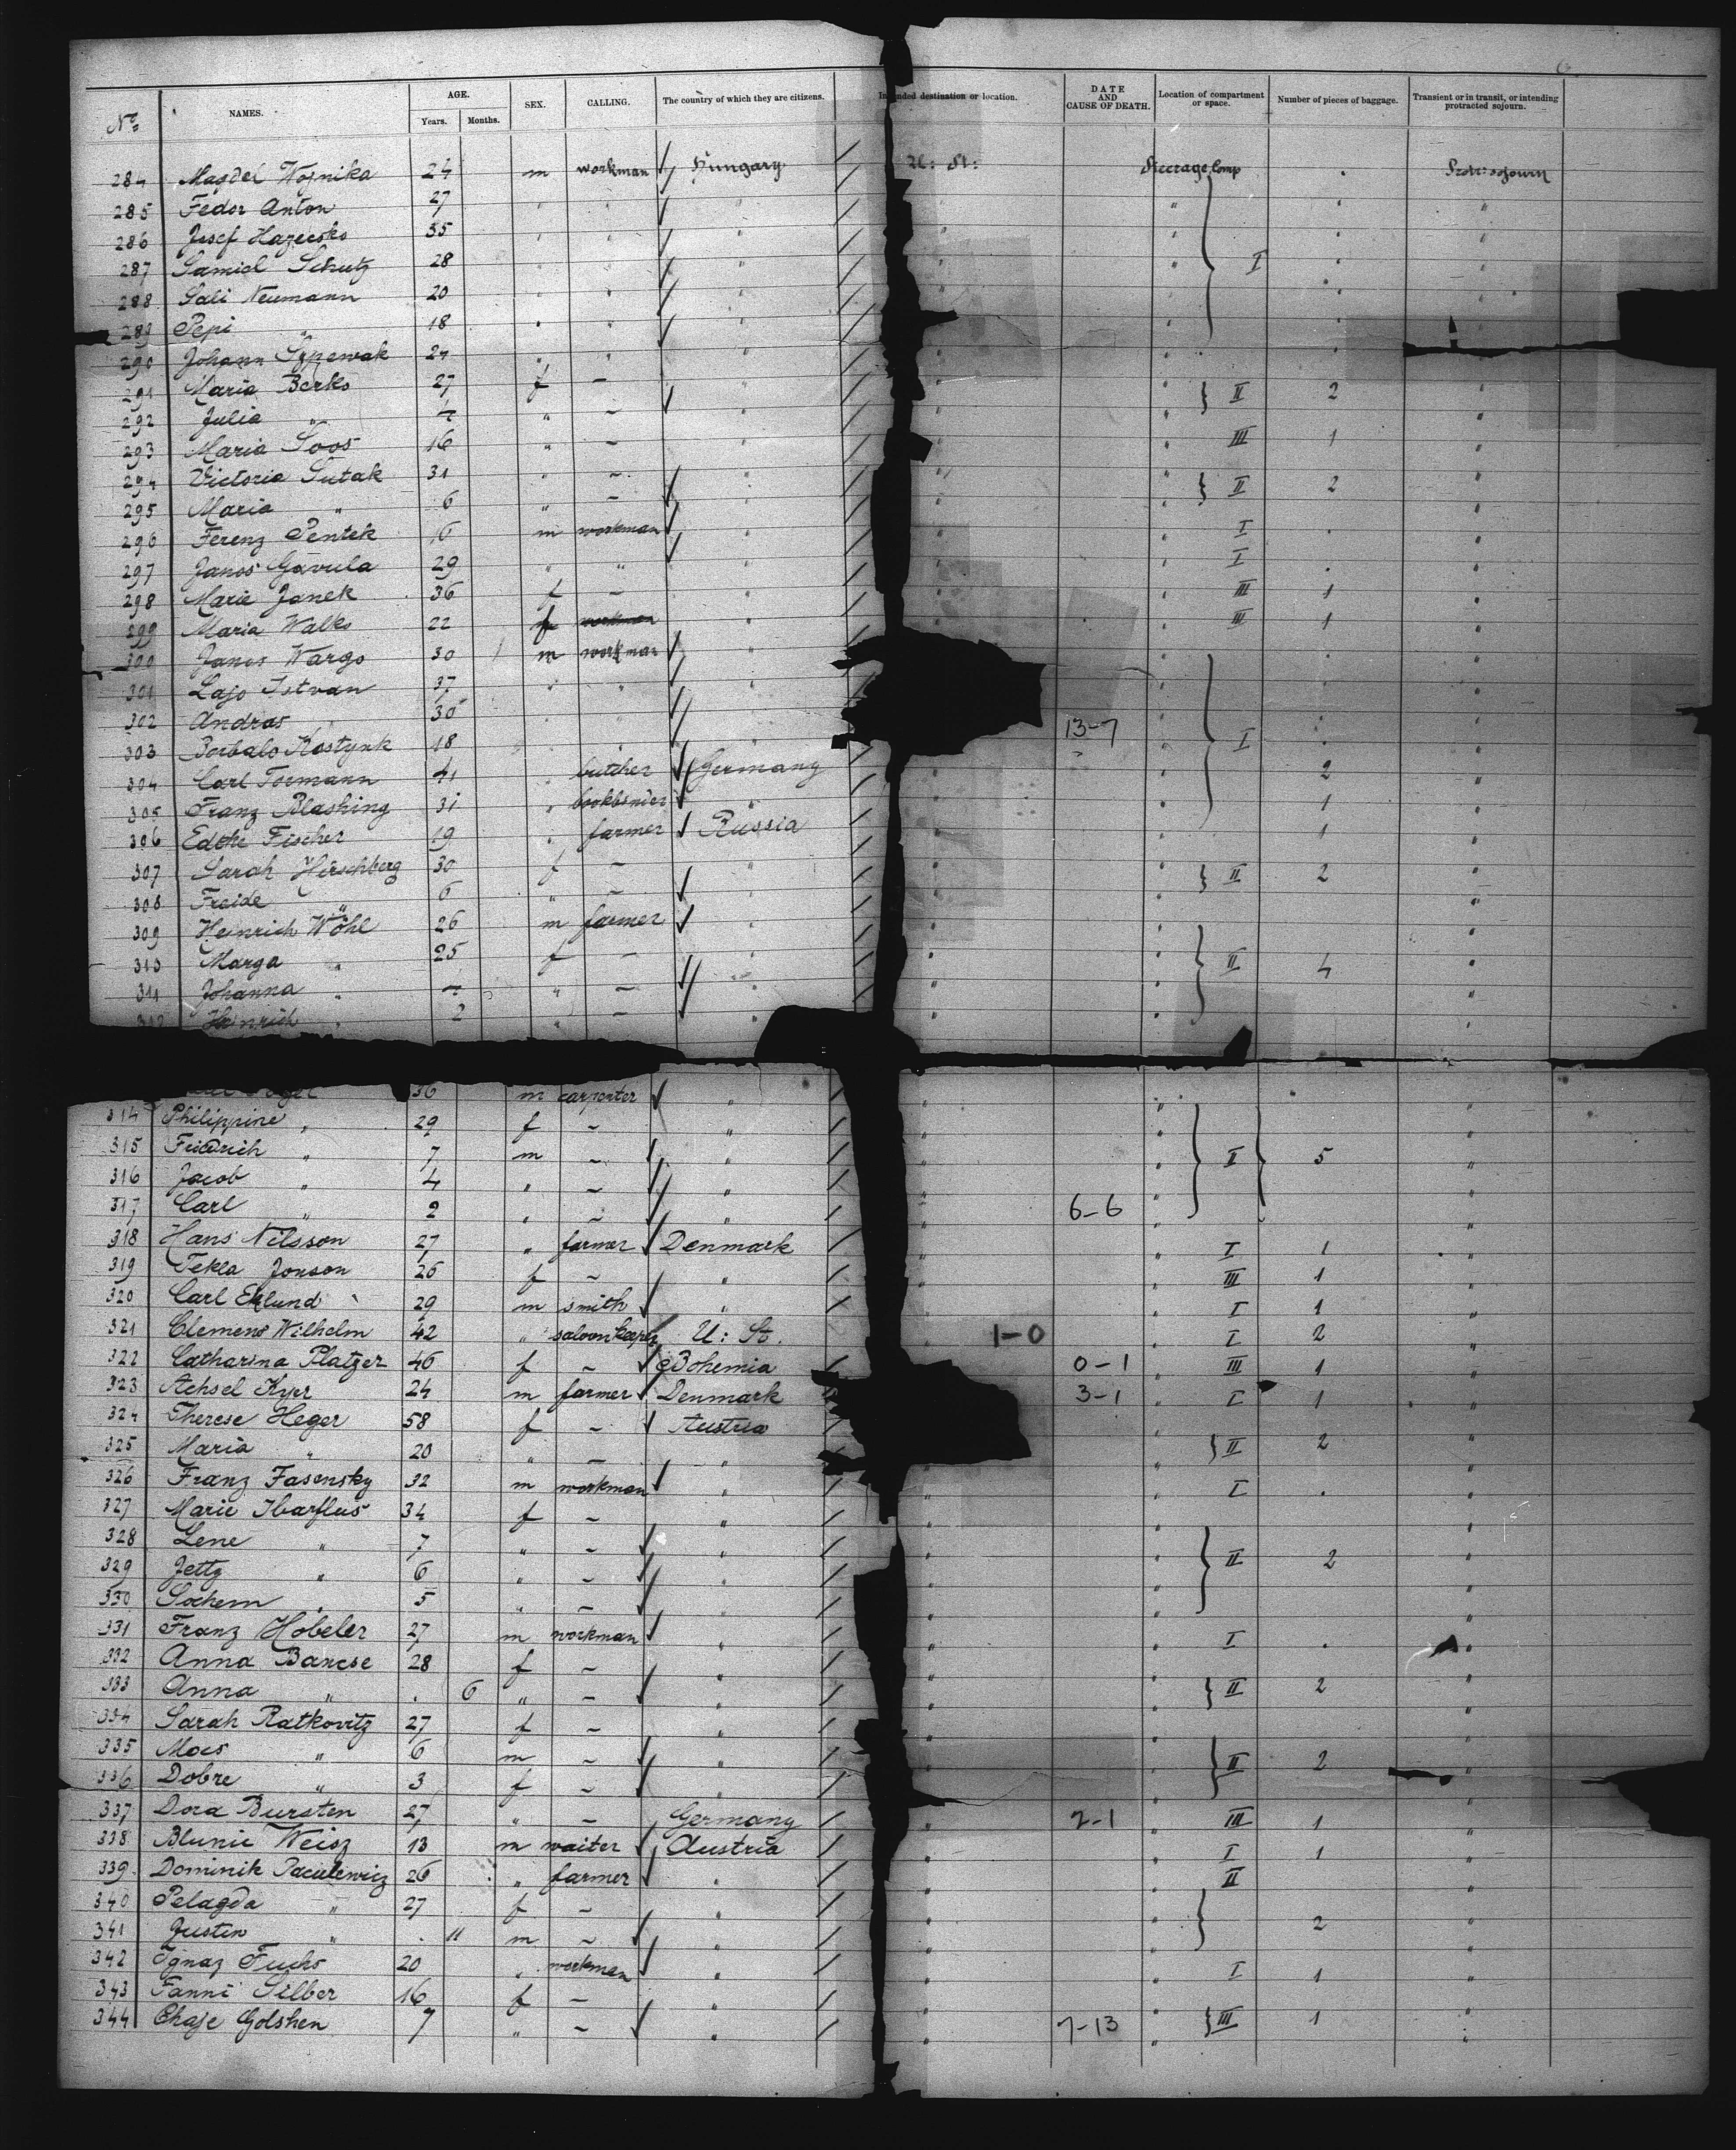 6
No NAMES. AGE. Years. Months. SEX. CALLING. The country of which they are citizens. Intended destination or location. DATE AND CAUSE OF DEATH. Location of compartment or space. Number of pieces of baggage. Transient or in transit, or intending protracted sojourn.
284 Magdel Wojnika 24 m workman Hungary U: St: Steerage Comp Protr: sojourn
285 Fedor Anton 27 " " " " " "
286 Josef 35 " " " " " "
287 Samiel Schutz 28 " " " " " I "
288 Sali Neumann 20 " " " " " "
289 Pepi " 18 " " " " " "
290 Johann Szpewak 24 " " " " " "
291 Maria Berko 27 f – " " " II 2 "
292 Julia " 4 " – " " " "
293 Maria Soos 16 " – " " " III 1 "
294 Victoria Sutak 31 " – " " " II 2 "
295 Maria " 6 " – " " " "
296 Ferenz Pentek 16 m workman " " " I "
297 Janos Gavula 29 " " " " " I "
298 Marie Janek 36 f – " " " III 1 "
299 Maria Walko 22 f workman " " " III 1 "
300 Janos Wargo 30 m workman " " "
301 Lajo Istvan 37 " " " " "
302 Andras " 30 " " " 13-7 " "
303 Kostynk 18 " " " " I "
304 Carl Tormann 41 " butcher Germany " " 2 "
305 Franz Blashing 31 " bookbinder " " " 1 "
306 Edthe Fischer 19 " farmer Russia " " 1 "
307 Sarah Hirschberg 30 f – " " " II 2 "
308 Freide " 6 " – " " " "
309 Heinrich Wöhl 26 m farmer " " " "
310 Marga " 25 f – " " " II 4 "
311 Johanna " 4 " – " " " "
312 Heinrich " 2 " – " " " "
36 m carpenter " " " "
314 Philippine " 29 f – " " " "
315 Friedrich " 7 m – " " " II 5 "
316 Jacob " 4 " – " " " "
317 Carl " 2 " – " " 6-6 " "
318 Hans Nilsson 27 " farmer Denmark " " I 1 "
319 Tekla Jonson 26 f – " " " III 1 "
320 Carl Eklund 29 m smith " " " I 1 "
321 Clemens Wilhelm 42 " saloonkeeper U: St. 1-0 " I 2 "
322 Catharina Platzer 46 f – Bohemia 0-1 " III 1 "
323 Achsel Kyer 24 m farmer Denmark 3-1 " I 1 "
324 Therese Heger 58 f – Austria " "
325 Maria " 20 " – " " II 2 "
326 Franz Fasensky 32 m workman " " " I "
327 Marie 34 f – " " " "
328 Lene " 7 " – " " " "
329 Jetty " 6 " – " " " II 2 "
330 Sochem " 5 " – " " " "
331 Franz Hobeler 27 m workman " " " I "
332 Anna Bancse 28 f – " " " "
333 Anna " . 6 " – " " " II 2 "
334 Sarah Ratkovitz 27 f – " " " "
335 Moes " 6 m – " " " II 2 "
336 Dobre " 3 f – " " " "
337 Dora Bursten 27 " – Germany " 2-1 " III 1 "
338 Blunie Weisz 13 m waiter Austria " " I 1 "
339 Dominik Paculewicz 26 " farmer " " " II "
340 Pelagda " 27 f – " " " "
341 Justin " . 11 m – " " " 2 "
342 Ignaz Fuchs 20 " workman " " " I 1 "
343 Fanni Silber 16 f – " " " "
344 Chaje Golshen 7 " – " " 7-13 " III 1 "